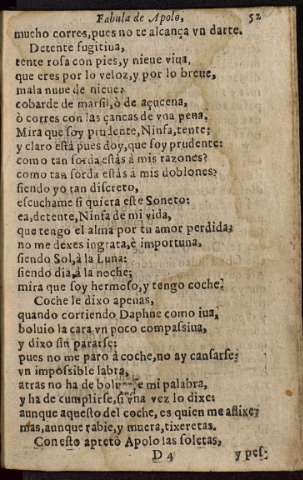 Fabula de Apolo, 52
mucho corres, pues no te alcança vn darte.
Detente fugitiua,
tente rosa con pies, y nieue viua,
que eres por lo veloz, y por lo breue,
mala nuue de nieue?
cobarde de marfil, ò de açucena,
ò corres con las çancas de vna pena,
Mira que soy prudente, Ninfa, tente;
y claro està pues doy, que soy prudente:
como tan sorda estàs à mis razones?
como tan sorda estàs à mis doblones?
siendo yo tan discreto,
escuchame si quiera este Soneto:
ea, detente, Ninfa de mi vida,
que tengo el alma por tu amor perdida;
no me dexes ingrata, è importuna,
siendo Sol, à la Luna;
siendo dia, à la noche;
mira que soy hermoso, y tengo coche?
Coche le dixo apenas,
quando corriendo Daphne como iua,
boluio la cara vn poco compassiua,
y dixo sin pararse;
pues no me paro à coche, no ay cansarse;
vn impossible labra,
atras no ha de mi palabra,
y ha de cumplirse, si vna vez lo dixe:
aunque aquesto del coche, es quien me aflixe;
mas, aunque rabie, y muera, tixeretas.
Con esto apretò Apolo las soletas,
D 4 y pes-